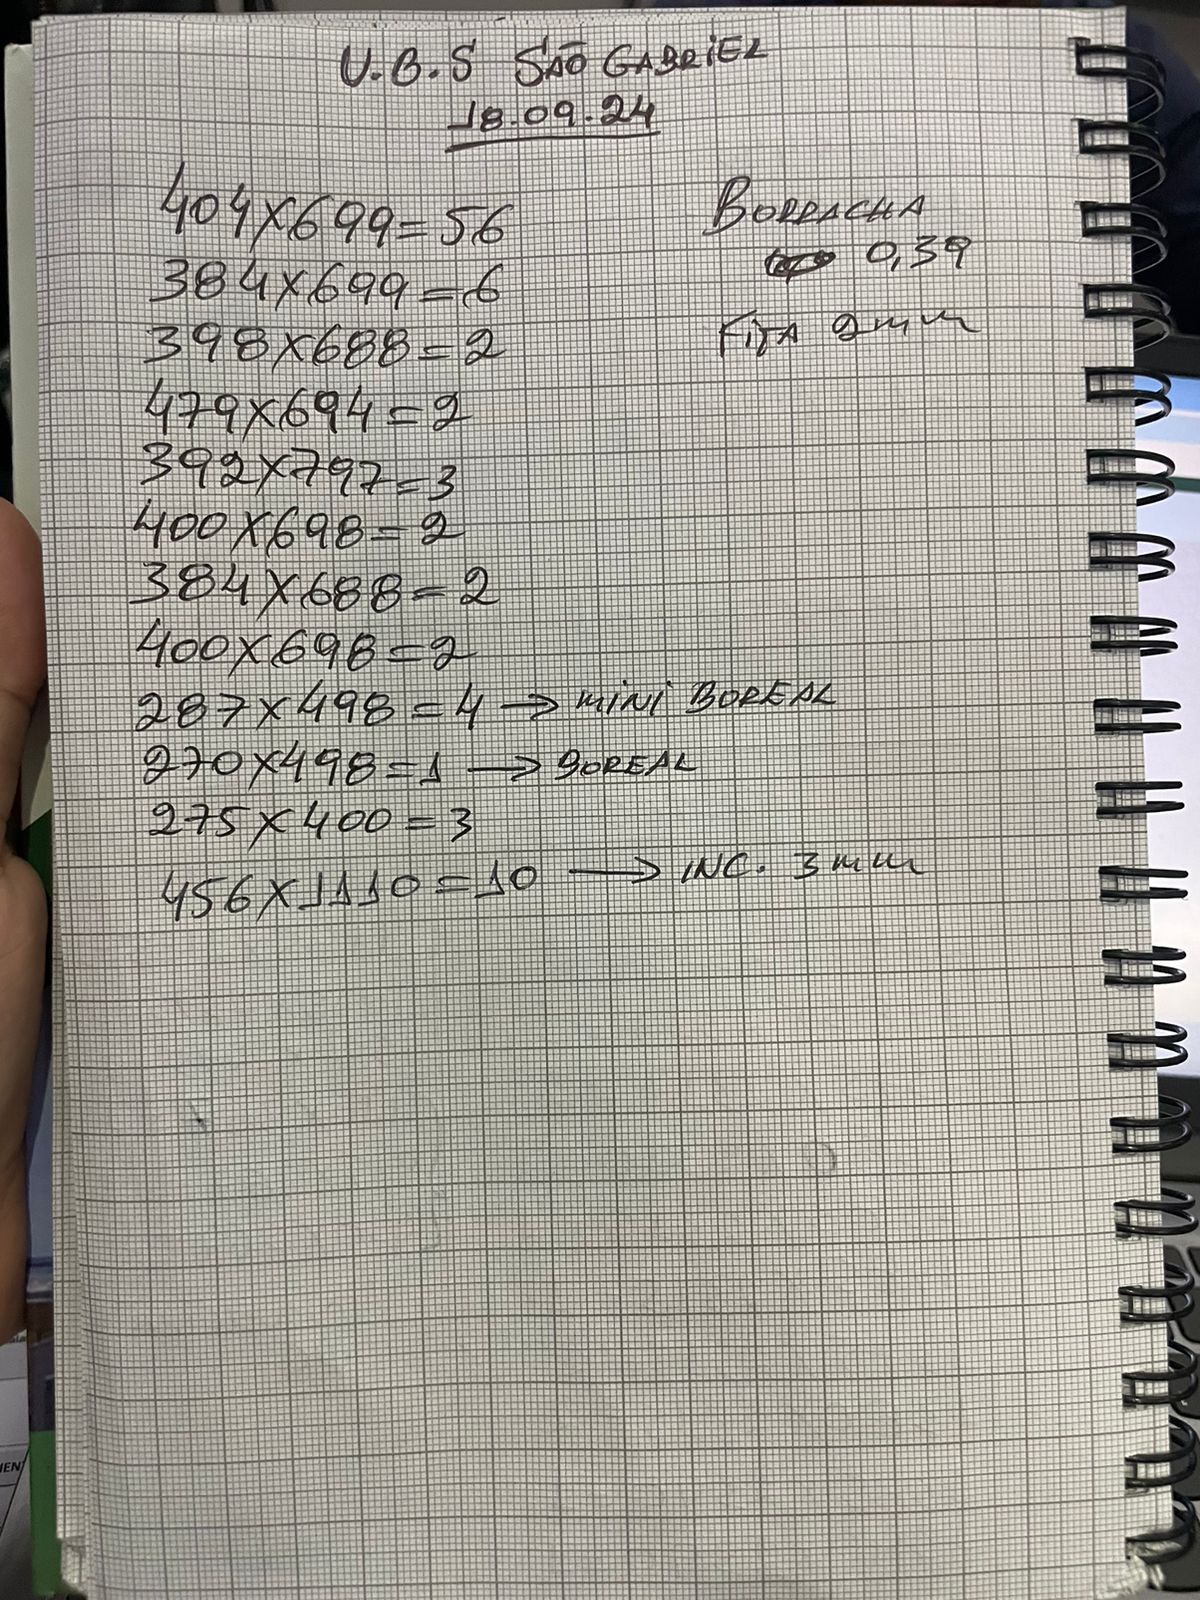 U.B.S SÃO GABRIEL
18.09.24
404X699=56
384X699=6
398X688=2
479X694=2
392X797=3
400X698=2
384X688=2
400X698=2
287X498=4 → MINI BOREAL
270X498=1 → BOREAL
275X400=3
456X1110=10 → INC. 3mm
BORRACHA
0,39
FITA 9mm